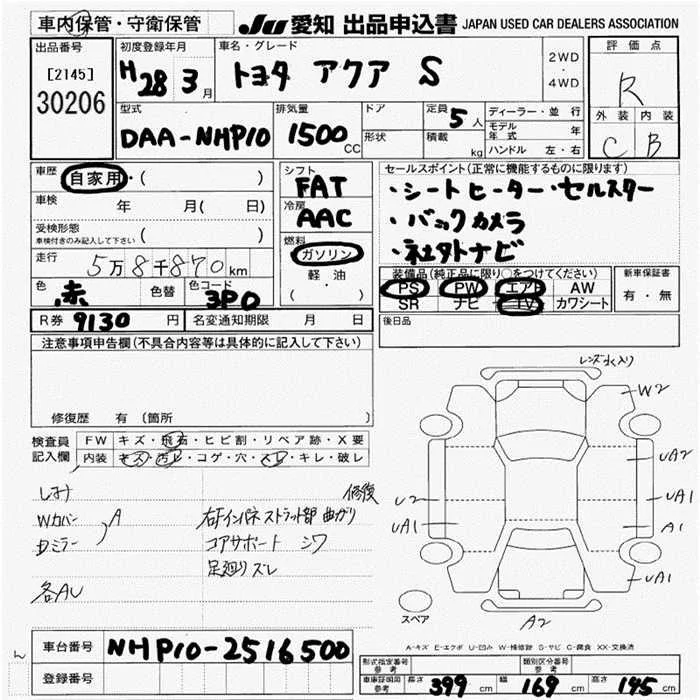 車内保管・守衛保管
JU 愛知 出品申込書 JAPAN USED CAR DEALERS ASSOCIATION
出品番号
[2145]
30206
初度登録年月
H28 3月
車名・グレード
トヨタ アクア S
2WD
・
4WD
評価点
R
型式
DAA-NHP10
排気量
1500 CC
ドア
形状
定員 5人
積載 kg
ディーラー・並行
モデル年式 年
ハンドル 左・右
外装 内装
C B
車歴 自家用・( )
車検 年 月( 日)
受検形態
車検付きのみ記入して下さい ( )
走行 5万8千870km
色 赤 色替 色コード 3P0
シフト
FAT
冷房
AAC
燃料
ガソリン
軽・油
( ・ )
セールスポイント(正常に機能するものに限ります)
・シートヒーター・セルスター
・バックカメラ
・社外ナビ
装備品(純正品に限り○をつけてください)
PS PW エアB AW
SR ナビ TV カワシート
新車保証書
有・無
R券 9130 円 名変通知期限 月 日
後日品
注意事項申告欄(不具合内容等は具体的に記入して下さい)
修復歴 有 (箇所
検査員
記入欄
FW キズ・飛石・ヒビ割・リペア跡・X要
内装 キズ・汚レ・コゲ・穴・スレ・キレ・破レ
修復
Wカバー
Dミラー
A
右Fインパネ ストラット部 曲がり
コアサポート シワ
足廻りズレ
各AU
レンズ水入り
W2
UA2
U2
UA1
UA1
A1
UA1
A2
スペア
A-キズ E-エクボ U-凹み W-補修跡 S-サビ C-腐食 XX-交換済
ん
車台番号 NHP10-2516500
登録番号
形式指定番号
参考
類別区分番号
参考
車庫証明用
参考
長さ 399 cm 幅 169 cm 高さ 145 cm